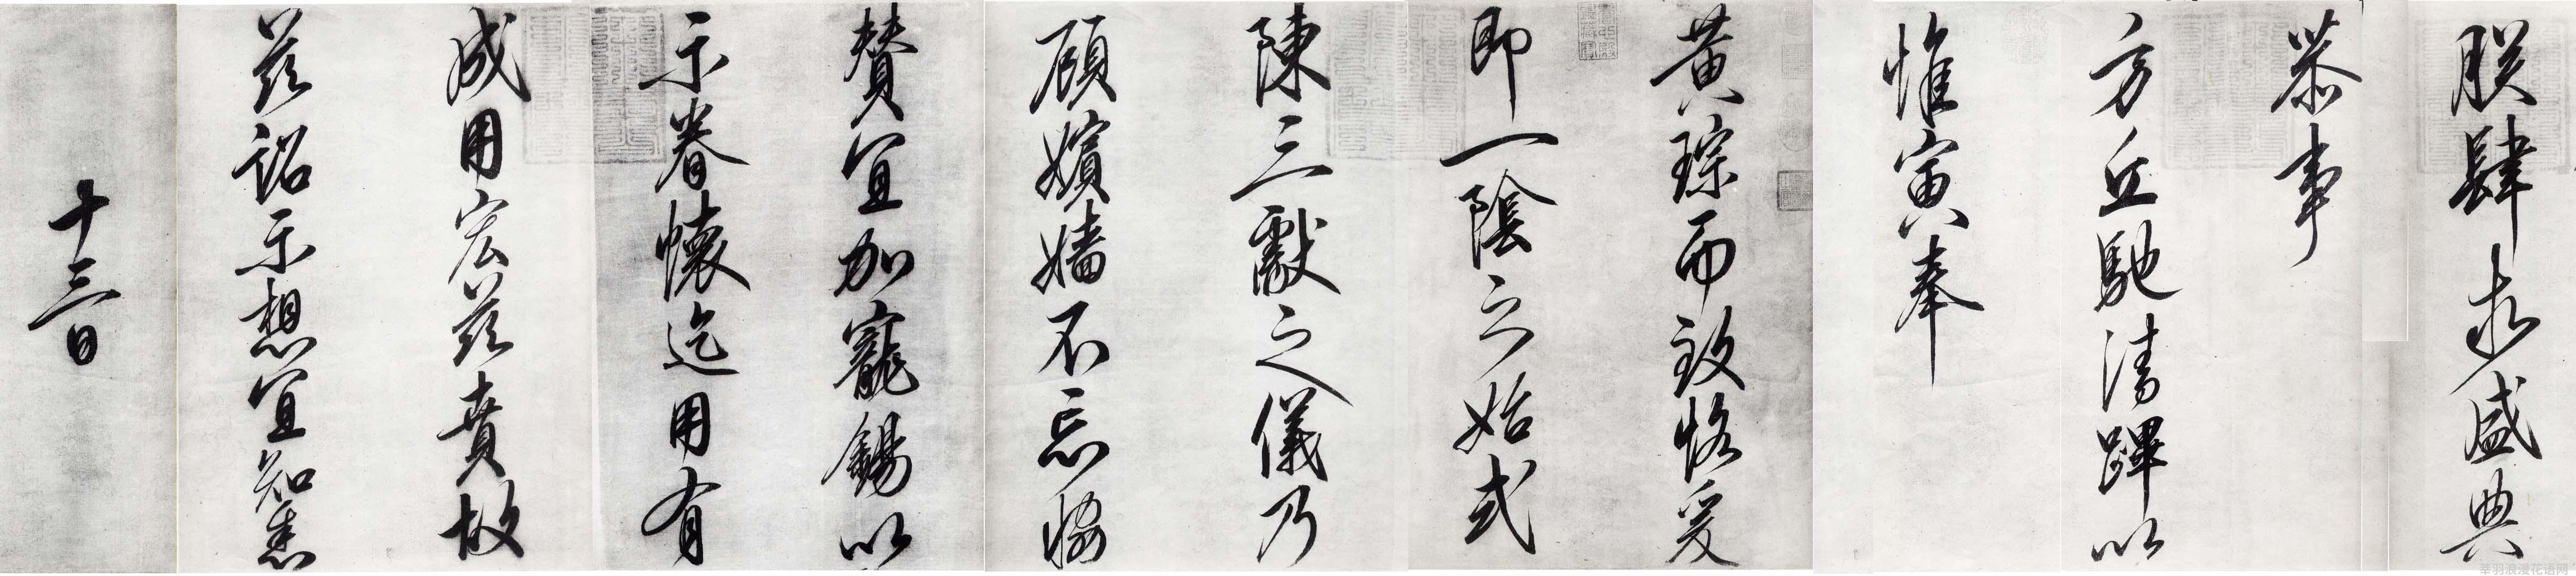 朕肆求盛典
恭事
方丘馳清蹕以
惟寅奉
黃琮而致恪爰
即一陰之始式
陳三獻之儀乃
顧嬪嬙不忘協
贊宜加寵錫以
示眷懷迄用有
成用宏茲賁故
茲詔示想宜知悉
十三日
莘羽浪漫花语网